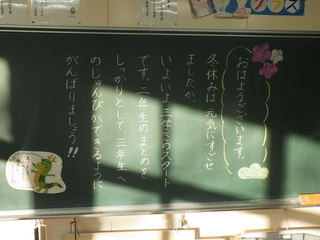 おはようございます。
冬休みは元気にすごせ
ましたか。
いよいよ三学きのスタート
です。二年生のまとめを
しっかりとして三年生へ
のじゅんびができるように
がんばりましょう!!
クラス